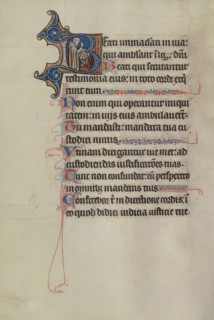 Beati inmaculati in uia:
qui ambulant ī lege dñi
Beati qui scrutantur
testimonia eius: in toto corde exq̄
runt eum
Non enim qui operantur iniqui
tatem: in uiis eius ambulauerūt
Tu mandasti: mandata tua cu
stodiri nimis
Utinam dirigantur uie mee: ad
custodiendas iustificatōes tuas
Tunc non confundar: cū perspexero
in omnibȝ mandatis tuis
Confitebor t̄ in directione cordis: ī
eo quod didici iudicia iusticie tue